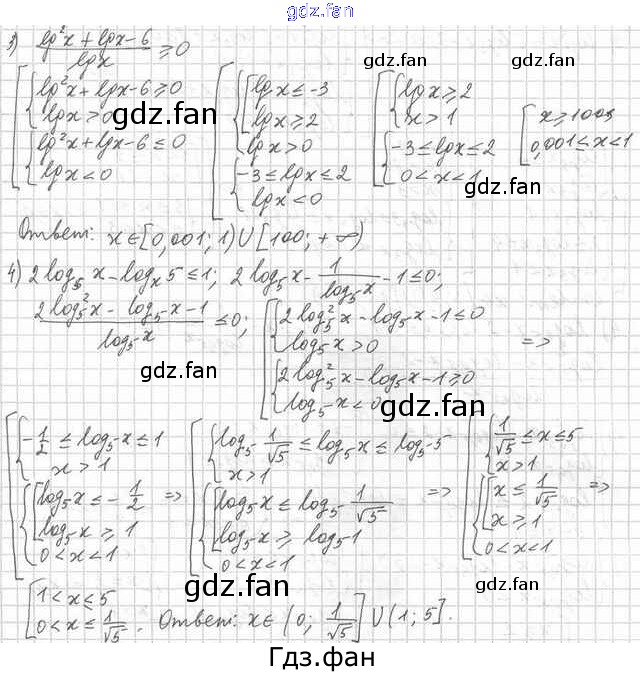 gdz.fan
3) (lg²x + lgx - 6)/lgx ≥ 0
gdz.fan
[ { lg²x + lgx - 6 ≥ 0 ; lgx > 0 ; { lg²x + lgx - 6 ≤ 0 ; lgx < 0
[ { [ lgx ≤ -3 ; lgx ≥ 2 ; lgx > 0 ; { -3 ≤ lgx ≤ 2 ; lgx < 0
[ { lgx ≥ 2 ; x > 1 ; { -3 ≤ lgx ≤ 2 ; 0 < x < 1
[ x ≥ 100; 0,001 ≤ x < 1
gdz.fan
gdz.fan
Ответ: x ∈ [0,001; 1) ∪ [100; +∞)
4) 2log₅x - logₓ5 ≤ 1; 2log₅x - 1/log₅x - 1 ≤ 0;
(2log₅²x - log₅x - 1)/log₅x ≤ 0; [ { 2log₅²x - log₅x - 1 ≤ 0 ; log₅x > 0 ; { 2log₅²x - log₅x - 1 ≥ 0 ; log₅x < 0 =>
gdz.fan
gdz.fan
[ { -1/2 ≤ log₅x ≤ 1 ; x > 1 ; { [ log₅x ≤ -1/2 ; log₅x ≥ 1 ; 0 < x < 1 =>
[ { log₅ 1/√5 ≤ log₅x ≤ log₅5 ; x > 1 ; { [ log₅x ≤ log₅ 1/√5 ; log₅x ≥ log₅1 ; 0 < x < 1 =>
[ { 1/√5 ≤ x ≤ 5 ; x > 1 ; { [ x ≤ 1/√5 ; x ≥ 1 ; 0 < x < 1 =>
gdz.fan
gdz.fan
[ 1 < x ≤ 5 ; 0 < x ≤ 1/√5 . Ответ: x ∈ (0; 1/√5] ∪ (1; 5].
Гдз.фан